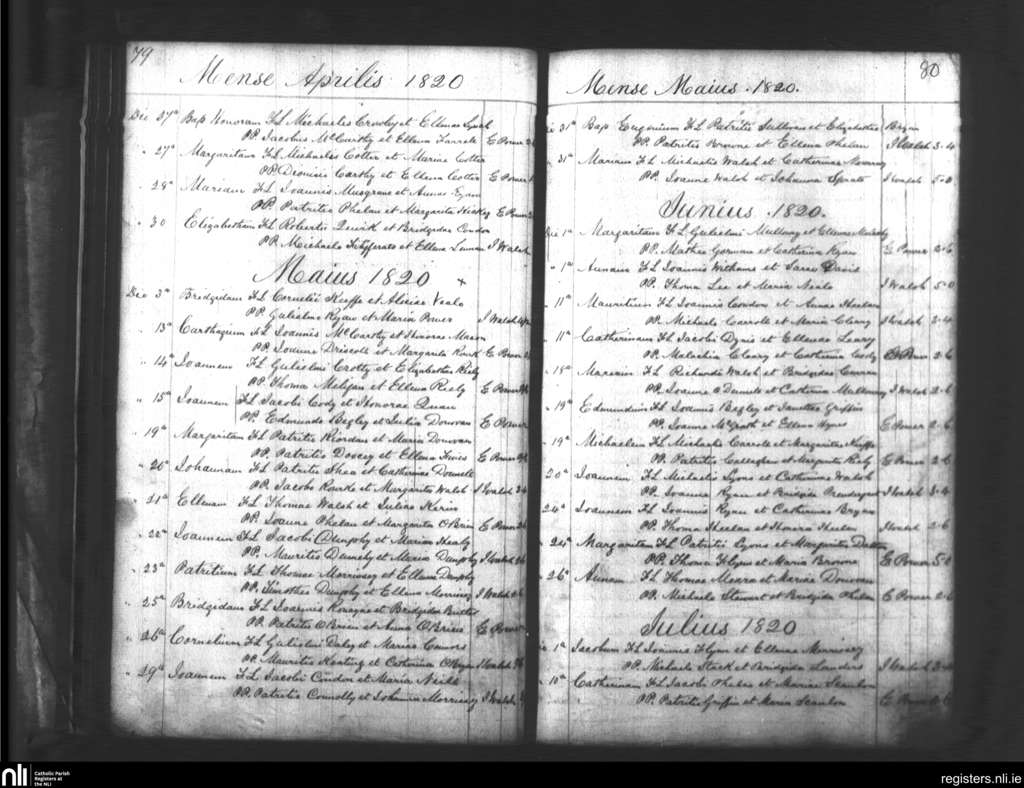 79
Mense Aprilis 1820
Die 27ª Bap Honoram FL Michaelis Crowley et Ellenae Lynch
PP. Jacobus McCarthy et Ellena Farrell E Power
" 27ª Margaritam FL Michaelis Cotter et Mariae Cotter
PP. Dionisio Carthy et Ellena Cotter E Power
" 28ª Mariam FL Ioannis Musgrave et Annae Egan
PP. Patritio Phelan et Margarita Hickey E Power
" 30 Elizabetham FL Roberti Quirk et Bridgidae Condon
PP. Michaele Fitzgerald et Ellena I Walsh
Maius 1820
Die 3ª Bridgidam FL Cornelii Keeffe et Aloisiae Neale
PP. Gulielmo Ryan et Maria Power I Walsh
" 13ª Carthagium FL Ioannis McCarthy et Honorae Mason
PP. Ioanne Driscoll et Margarita E Power
" 14ª Ioannem FL Gulielmi Crotty et Elizabethae Riely
PP. Thoma Meligan et Ellena Riely E Power
" 15ª Ioannem FL Jacobi Cody et Honorae Quan
PP. Edmundo Begley et Iulia Donovan E Power
" 19ª Margaritam FL Patritii Riordan et Maria Donovan
PP. Patritio Doocey et Ellena E Power
" 20ª Iohannam FL Patritii Shea et Catherinae Donnell
PP. Jacobo Rourke et Margarita Walsh I Walsh
" 21ª Ellenam FL Thomae Walsh et Iuliae
PP. Ioanne Phelan et Margarita O'Brien E Power
" 22ª Ioannem FL Jacobi Dunphy et Mariae Healy
PP. Mauritio Dunphy et Maria Dunphy I Walsh
" 23ª Patritium FL Thomae Morrissey et Ellenae Dunphy
PP. Timotheo Dunphy et Ellena Morrissey I Walsh
" 25ª Bridgidam FL Ioannis et Bridgidae Butler
PP. Patritio O'Brien et Anna O'Brien E Power
" 26ª Cornelium FL Gulielmi Daley et Mariae Connors
PP. Mauritio Keating et Catherina O'Bryan I Walsh
" 29ª Ioannem FL Jacobi Condon et Maria Neill
PP. Patritio Connolly et Iohanna Morrissey I Walsh
80
Mense Maius 1820.
Die 31ª Bap Eugenium FL Patritii Sullivan et Elizabethae Bryan
PP. Patritio Browne et Ellena Phelan I Walsh 3-4
31ª Mariam FL Michaelis Walsh et Catherinae
PP. Ioanne Walsh et Iohanna Spratt I Walsh 5-0
Iunius 1820.
Die 1ª Margaritam FL Gulielmi Mullany et Ellenae
PP. Mathia Gorman et Catherina Ryan E Power 2-6
" 1ª Annam FL Ioannis Withams et Sarae Davis
PP. Thoma Lee et Maria Neale I Walsh 5-0
" 11ª Mauritium FL Ioannis Condon et Annae Heelan
PP. Michaele Carrolle et Maria Cleary I Walsh 3-4
" 11ª Catherinam FL Jacobi et Ellenae Leary
PP. Malachia Cleary et Catherina E Power 2-6
" 18ª Mariam FL Richardi Walsh et Bridgidae Curran
PP. Ioanne et Catherina Mullany I Walsh 2-6
" 19ª Edmundum FL Ioannis Begley et Ianettae Griffin
PP. Ioanne McGrath et Ellena Hynes E Power 2-6
" 19ª Michaelem FL Michaelis Carrolle et Margaritae Keeffe
PP. Patritio Callaghan et Margarita Riely E Power 2-6
20ª Ioannem FL Michaelis Lyons et Catherinae Walsh
PP. Ioanne Ryan et Bridgida Prendergast I Walsh 3-4
24ª Ioannem FL Ioannis Ryan et Catherinae Bryan
PP. Thoma Heelan et Honora Heelan I Walsh 2-6
" 24ª Margaritam FL Patritii Lyons et Margaritae Dalton
PP. Thoma Flynn et Maria Browne E Power 5-0
" 26ª Annam FL Thomae Meara et Mariae Donovan
PP. Michaele Stewart et Bridgida Phelan E Power 2-6
Iulius 1820
1ª Jacobum FL Ioannis Flynn et Ellenae Morrissey
PP. Michaele Stack et Bridgida Landers I Walsh 3-4
" 10ª Catherinam FL Jacobi Phelan et Mariae Scanlon
PP. Patritio Griffin et Maria Scanlon E Power 2-6
nli Catholic Parish
Registers at
the NLI
registers.nli.ie